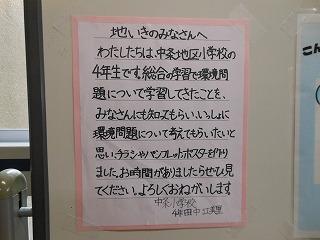 地いきのみなさんへ
わたしたちは、中条地区小学校の
4年生です。総合の学習で環境問
題について学習してきたことを、
みなさんにも知ってもらい、いっしょに
環境問題について考えてもらいたいと
思い、チラシやパンフレット、ポスターを作り
ました。お時間がありましたらぜひ見
てください。よろしくおねがいします
中条小学校
4年田中江美里
こん